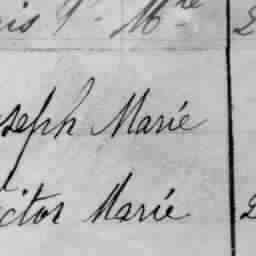 is P. Mre
seph Marie
ictor Marie